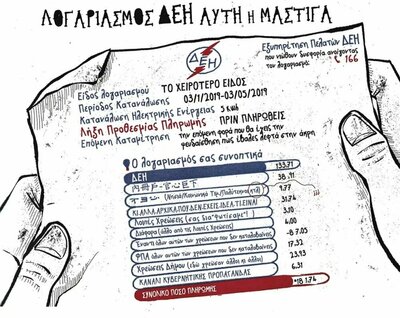 ΛΟΓΑΡΙΑΣΜΟΣ ΔΕΗ ΑΥΤΗ Η ΜΑΣΤΙΓΑ
ΔΕΗ
Εξυπηρέτηση Πελατών ΔΕΗ
που νιώθουν δυσφορία ανοίγοντας
τον λογαριασμό: 166
Είδος λογαριασμού ΤΟ ΧΕΙΡΟΤΕΡΟ ΕΙΔΟΣ
Περίοδος Κατανάλωσης 03/11/2019-03/05/2019
Κατανάλωση Ηλεκτρικής Ενέργειας 5 KWh
Λήξη Προθεσμίας Πληρωμής ΠΡΙΝ ΠΛΗΡΩΘΕΙΣ
Επόμενη Καταμέτρηση την επόμενη φορά που θα έχεις την
ψευδαίσθηση πως έβαλες λεφτά στην άκρη
Ο λογαριασμός σας συνοπτικά
ΔΕΗ 133.71
38.11
9.77
ΚΙ ΑΛΛΑ ΑΡΧΙΚΑ ΠΟΥ ΔΕΝ ΕΧΕΙΣ ΙΔΕΑ ΤΙ ΕΙΝΑΙ 31.74
Λοιπές Χρεώσεις 3.10
Διάφορα (άλλο από τις λοιπές Χρεώσεις) 6.00
Έναντι όλων αυτών των χρεώσεων που δεν καταλαβαίνεις -87.05
ΦΠΑ όλων αυτών των χρεώσεων που δεν καταλαβαίνεις 17.32
Χρεώσεις Δήμου (εδώ χρεώσαν άλλοι κι άλλοι) 23.93
ΚΑΝΑΛΙ ΚΥΒΕΡΝΗΤΙΚΗΣ ΠΡΟΠΑΓΑΝΔΑΣ 6.31
ΣΥΝΟΛΙΚΟ ΠΟΣΟ ΠΛΗΡΩΜΗΣ *181.74